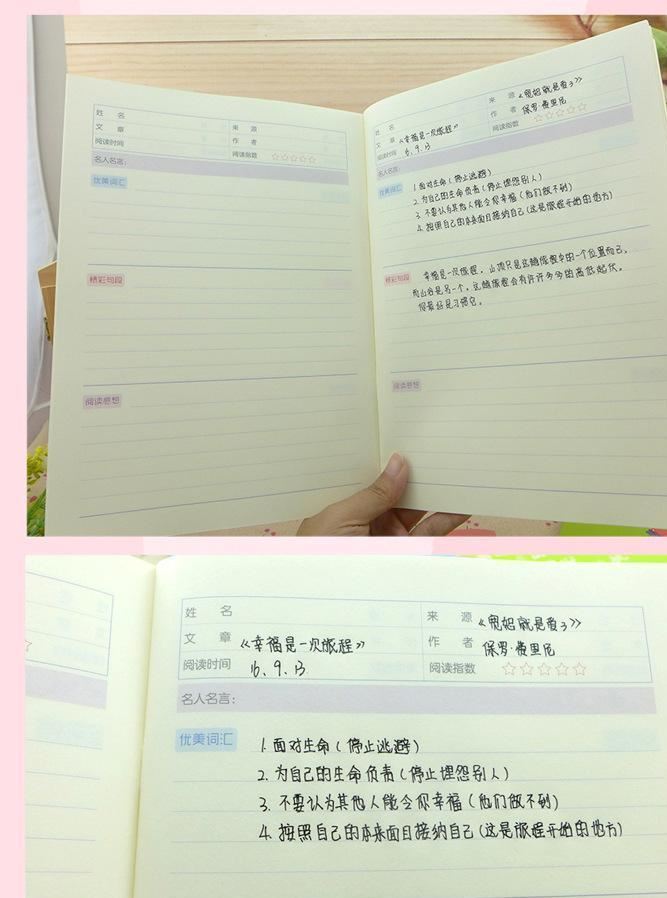 姓 名
文 章 来 源
阅读时间 作 者
名人名言： 阅读指数 ☆☆☆☆☆
优美词汇
精彩句段
阅读感想
姓 名 来 源 《宽恕就是爱3》
文 章 《幸福是一次旅程》 作 者 保罗·费里尼
阅读时间 16.9.13 阅读指数 ☆☆☆☆☆
名人名言：
优美词汇
1. 面对生命（停止逃避）
2. 为自己的生命负责（停止埋怨别人）
3. 不要认为其他人能令你幸福（他们做不到）
4. 按照自己的本来面目接纳自己（这是旅程开始的地方）
精彩句段
幸福是一次旅程，山顶只是这趟旅程中的一个位置而已，
而山谷是另一个。这趟旅程会有许许多多的高低起伏。
你最好是习惯它。
阅读感想
姓 名 来 源 《宽恕就是爱3》
文 章 《幸福是一次旅程》 作 者 保罗·费里尼
阅读时间 16.9.13. 阅读指数 ☆☆☆☆☆
名人名言：
优美词汇
1. 面对生命（停止逃避）
2. 为自己的生命负责（停止埋怨别人）
3. 不要认为其他人能令你幸福（他们做不到）
4. 按照自己的本来面目接纳自己（这是旅程开始的地方）